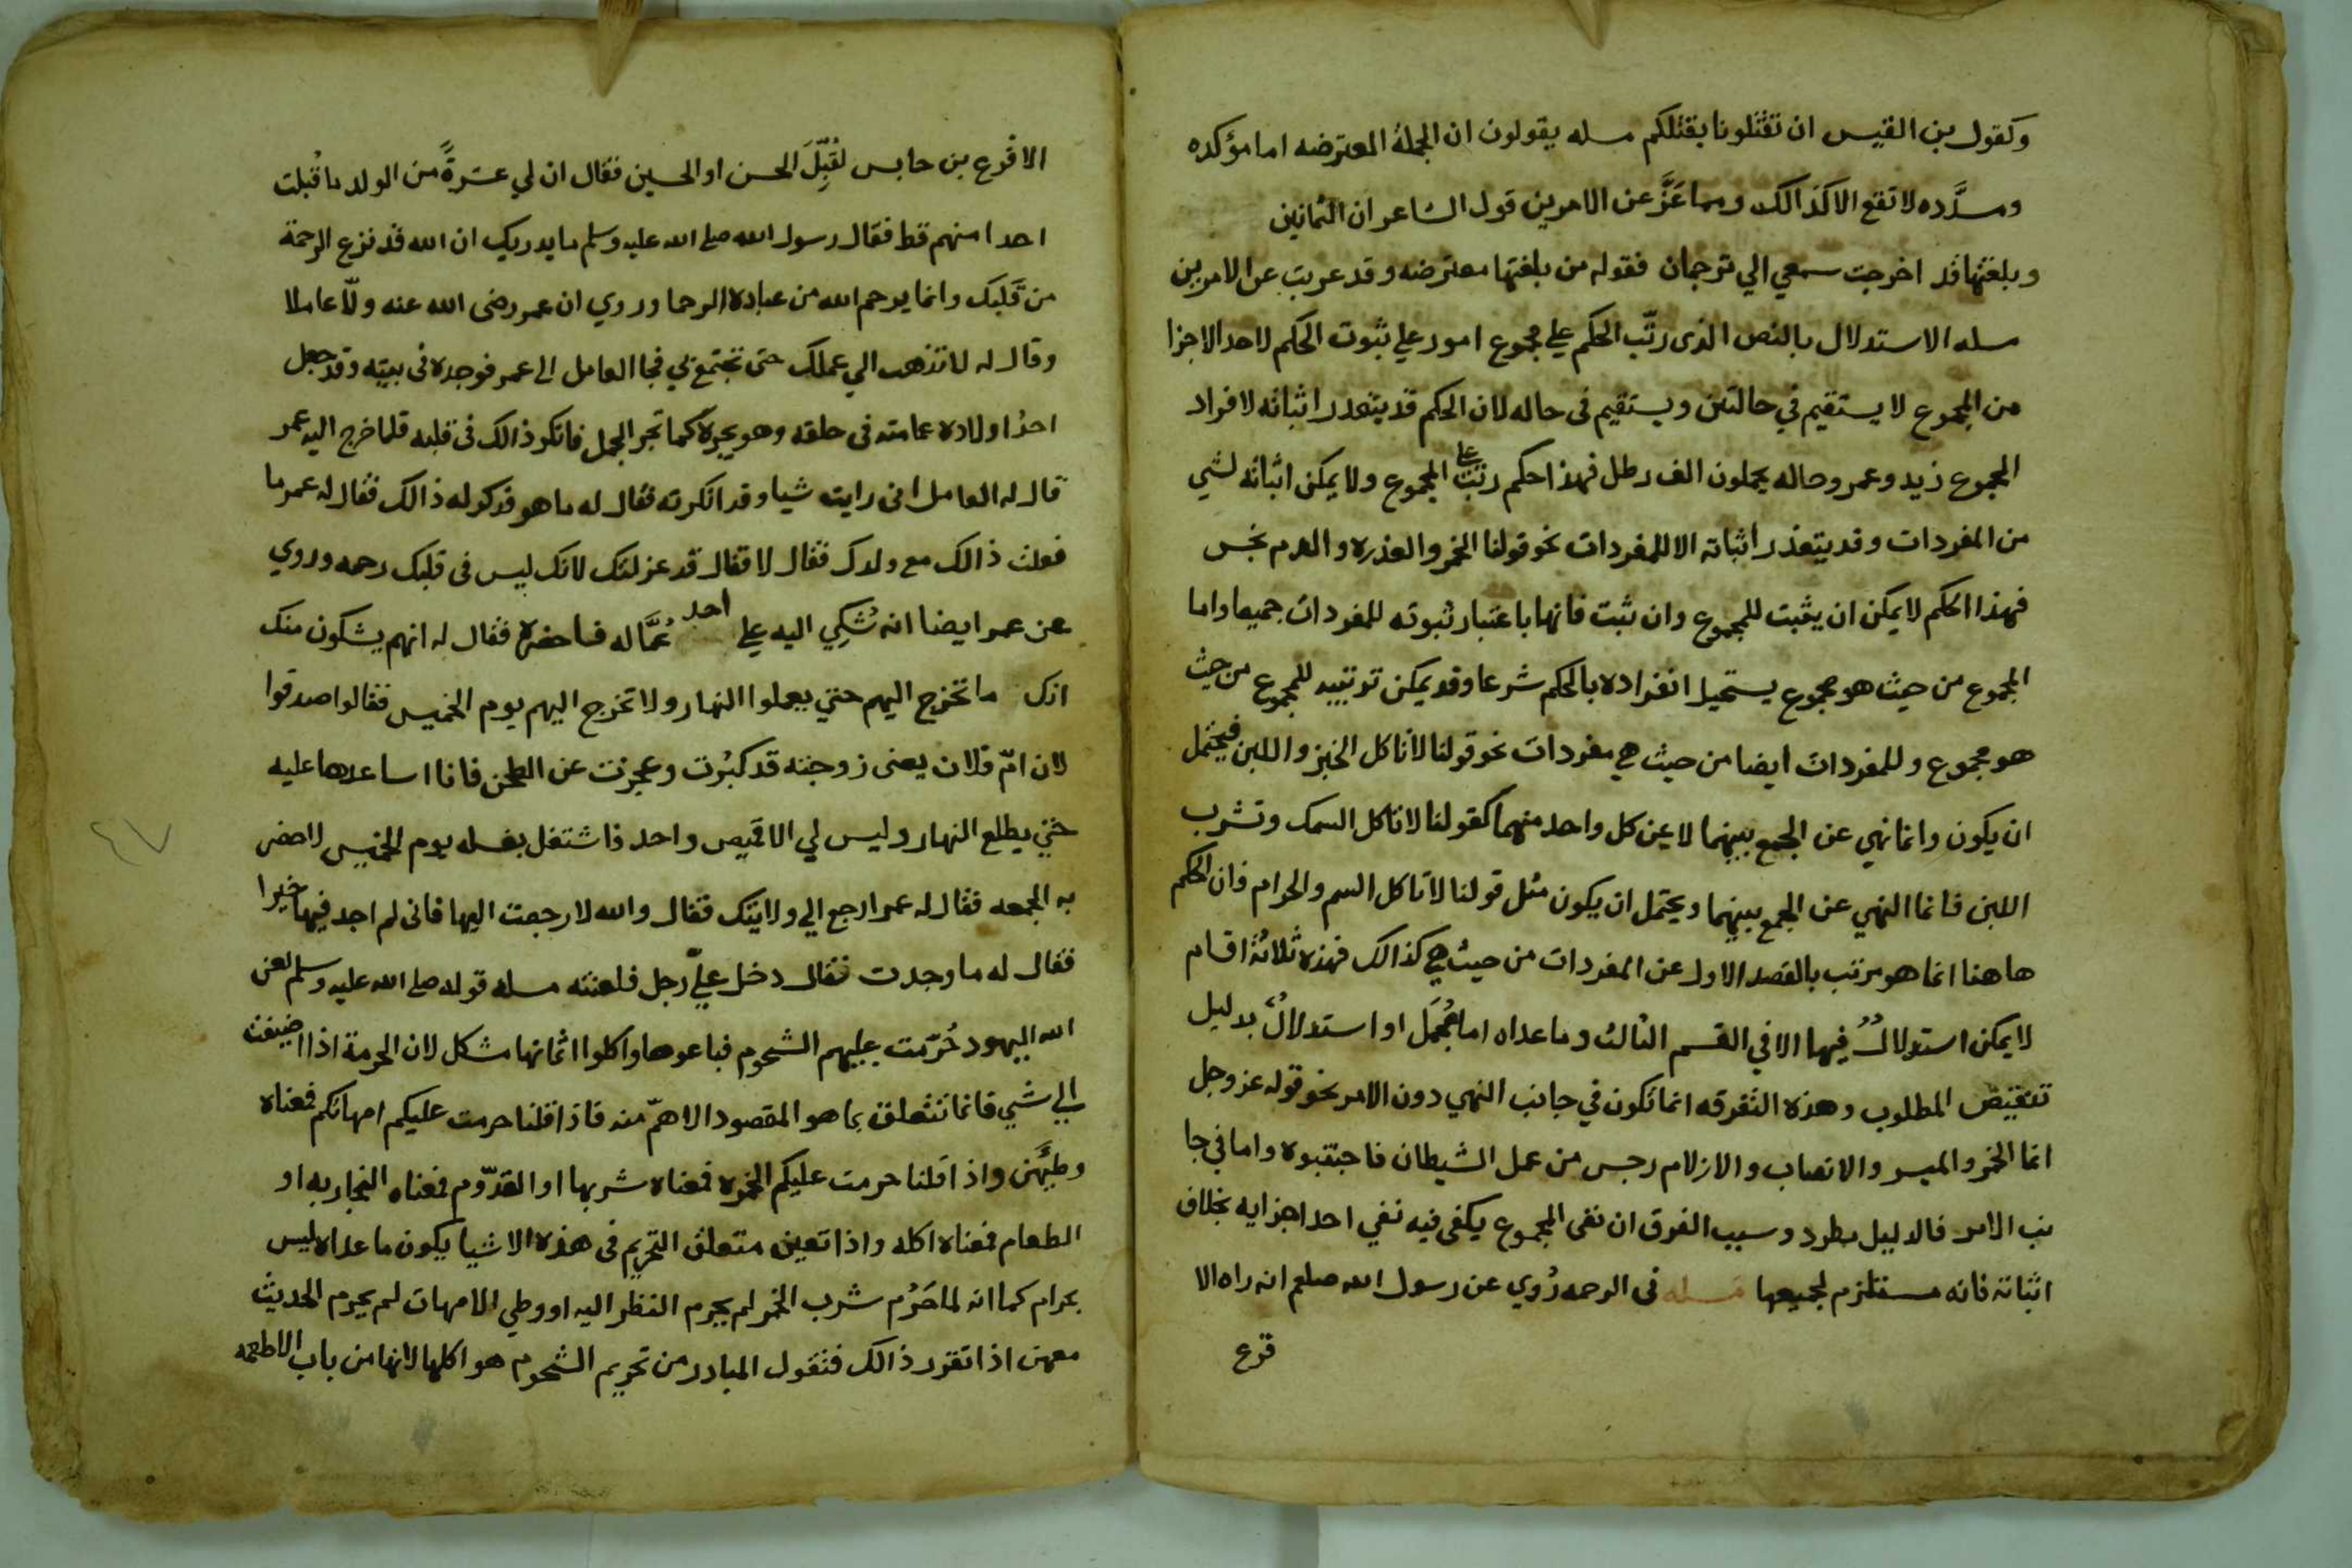 وكقول بن القيس ان تقتلونا بقتلكم مسله يقولون ان الجملة المعترضه اما مؤكده
ومسدَّده لا تقع الا كذالك ومما عَزَّ عن الامرين قول الشاعر ان الثمانين
وبلغتها قد اخرجت سمعي الي ترجمان فقوله من بلغتها معترضه وقد عريت عن الامرين
مسله الاستدلال بالنص الذى رتّب الحكم على مجموع امور علي ثبوت الحكم لاحد الاجزا
من المجموع لا يستقيم في حالتين ويستقيم فى حاله لان الحكم قد يتعدر اثباته لافراد
المجموع زيد وعمر وحاله يحملون الف رطل فهذا حكم رتبت على المجموع ولا يمكن اثباته لشي
من المفردات وقد يتعذر اثباته الا للمفردات نحو قولنا الخمر والعذره والدم نجس
فهذا الحكم لا يمكن ان يثبت للمجموع وان ثبت فانها باعتبار ثبوته للمفردات جميعا واما
المجموع من حيث هو مجموع يستحيل انفراده بالحكم شرعا وقد يمكن ترتيبه للمجموع من حيث
هو مجموع وللمفردات ايضا من حيث هي مفردات نحو قولنا لا تاكل الخبز واللبن فيحتمل
ان يكون وانما نهي عن الجمع بينهما لا عن كل واحد منهما كقولنا لا تاكل السمك وتشرب
اللبن فانما النهي عن الجمع بينهما ويحتمل ان يكون مثل قولنا لا تاكل السم والحرام فان الحكم
هاهنا انما هو مرتب بالقصد الاول عن المفردات من حيث هي كذالك فهذه ثلاثة اقسام
لا يمكن استدلالٌ فيها الا في القسم الثالث وما عداه اما مُجمَل او استدلالٌ بدليل
تنقيض المطلوب وهذه التفرقه انما تكون في جانب النهي دون الامر نحو قوله عز وجل
انما الخمر والميسر والانصاب والازلام رجس من عمل الشيطان فاجتنبوه واما في جا
نب الامر فالدليل مطرد وسبب الفرق ان نفى المجموع يكفى فيه نفي احد اجزايه بخلاف
اثباته فانه مستلزم لجميعها مسله فى الرحمه رُوي عن رسول الله صلعم انه راه الا
قرع
الاقرع بن حابس يُقبِّلَ الحسن او الحسين فقال ان لي عشرةً من الولد ما قبلت
احدا منهم قط فقال رسول الله صلى الله عليه وسلم ما يدريك ان الله قد نزع الرحمة
من قلبك وانما يرحم الله من عباده الرحما وروي ان عمر رضى الله عنه ولّا عاملا
وقال له لا تذهب الي عملك حتى تجتمع بي فجا العامل الى عمر فوجده فى بيته وقد جعل
احدُ اولاده عمامته فى حلقه وهو يجره كما تجر الجمل فانكر ذالك فى قلبه فلما خرج اليه عمر
قال له العامل انى رايت شيا وقد انكرته فقال له ما هو فذكر له ذالك فقال له عمر ما
فعلت ذالك مع ولدك فقال لا فقال قد عزلتك لانك ليس فى قلبك رحمه وروي
عن عمر ايضا انه شُكِي اليه علي احد عُمَّاله فاحضره فقال له انهم يشكون منك
انك ما تخرج اليهم حتي يعملوا النهار ولا تخرج اليهم يوم الخميس فقالوا صدقوا
لان امّ فلان يعنى زوجته قد كبُرت وعجزت عن الطحن فانا اساعدها عليه
حتي يطلع النهار وليس لي الا قميص واحد فاشتغل بغسله يوم الخميس لاحضر
به الجمعه فقال له عمر ارجع الي ولايتك فقال والله لا رجعت اليها فانى لم اجد فيها خيرا
فقال له ما وجدت فقال دخل عليّ رجل فلعنته مسله قوله صلى الله عليه وسلم لعن
الله اليهود حُرّمت عليهم الشحوم فباعوها واكلوا اثمانها مشكل لان الحرمة اذا اضيفت
الى شي فانما تتعلق بما هو المقصود الاهمّ منه فاذا قلنا حرمت عليكم امهاتكم فمعناه
وطيهّن واذا قلنا حرمت عليكم الخمره فمعناه شربها او القدّوم فمعناه النجار به او
الطعام فمعناه اكله واذا تعين متعلق التحريم فى هذه الاشيا يكون ما عداه ليس
بحرام كما انه لما حَرُم شرب الخمر لم يحرم النظر اليه او وطي الامهات لم يحرم الحديث
معهن اذا تقرر ذالك فنقول المبادر من تحريم الشحوم هو اكلها لانها من باب الاطعمه
٤٧